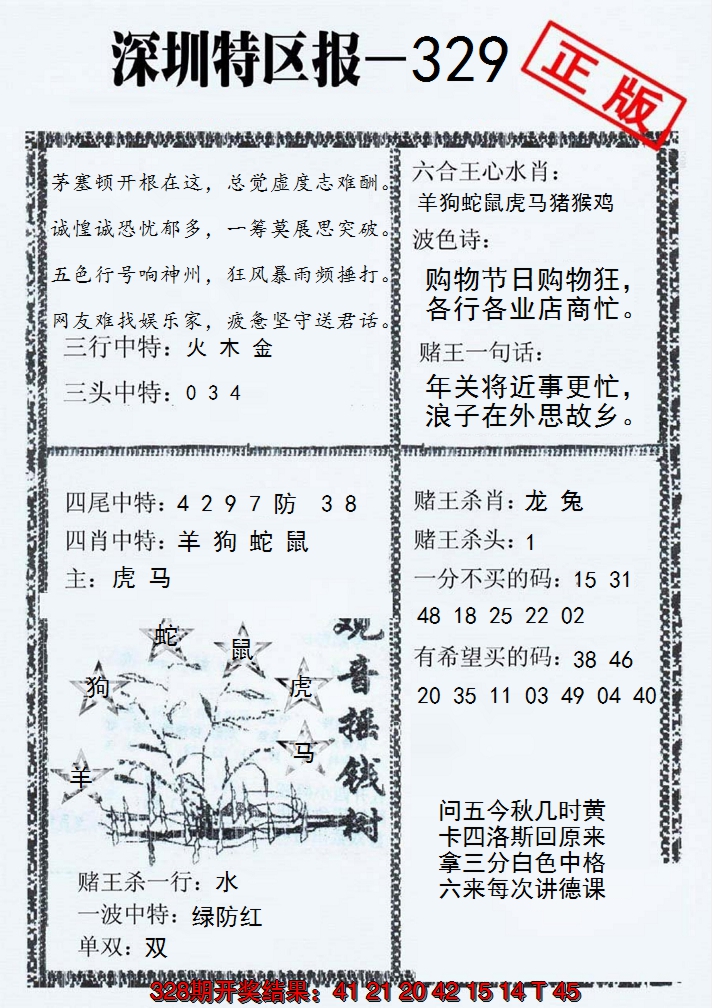 深圳特区报—329
正版
茅塞顿开根在这，总觉虚度志难酬。
诚惶诚恐忧郁多，一筹莫展思突破。
五色行号响神州，狂风暴雨频捶打。
网友难找娱乐家，疲惫坚守送君话。
三行中特：火 木 金
三头中特：0 3 4
六合王心水肖：
羊狗蛇鼠虎马猪猴鸡
波色诗：
购物节日购物狂，
各行各业店商忙。
赌王一句话：
年关将近事更忙，
浪子在外思故乡。
四尾中特：4 2 9 7 防 3 8
四肖中特：羊 狗 蛇 鼠
主：虎 马
观音摇钱树
蛇
鼠
狗
虎
马
羊
赌王杀一行：水
一波中特：绿防红
单双：双
赌王杀肖：龙 兔
赌王杀头：1
一分不买的码：15 31
48 18 25 22 02
有希望买的码：38 46
20 35 11 03 49 04 40
问五今秋几时黄
卡四洛斯回原来
拿三分白色中格
六来每次讲德课
328期开奖结果：41 21 20 42 15 14 T 45